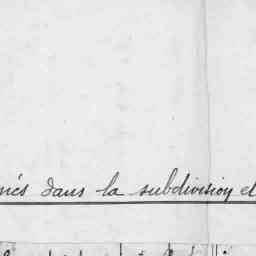 nés dans la subdivision et